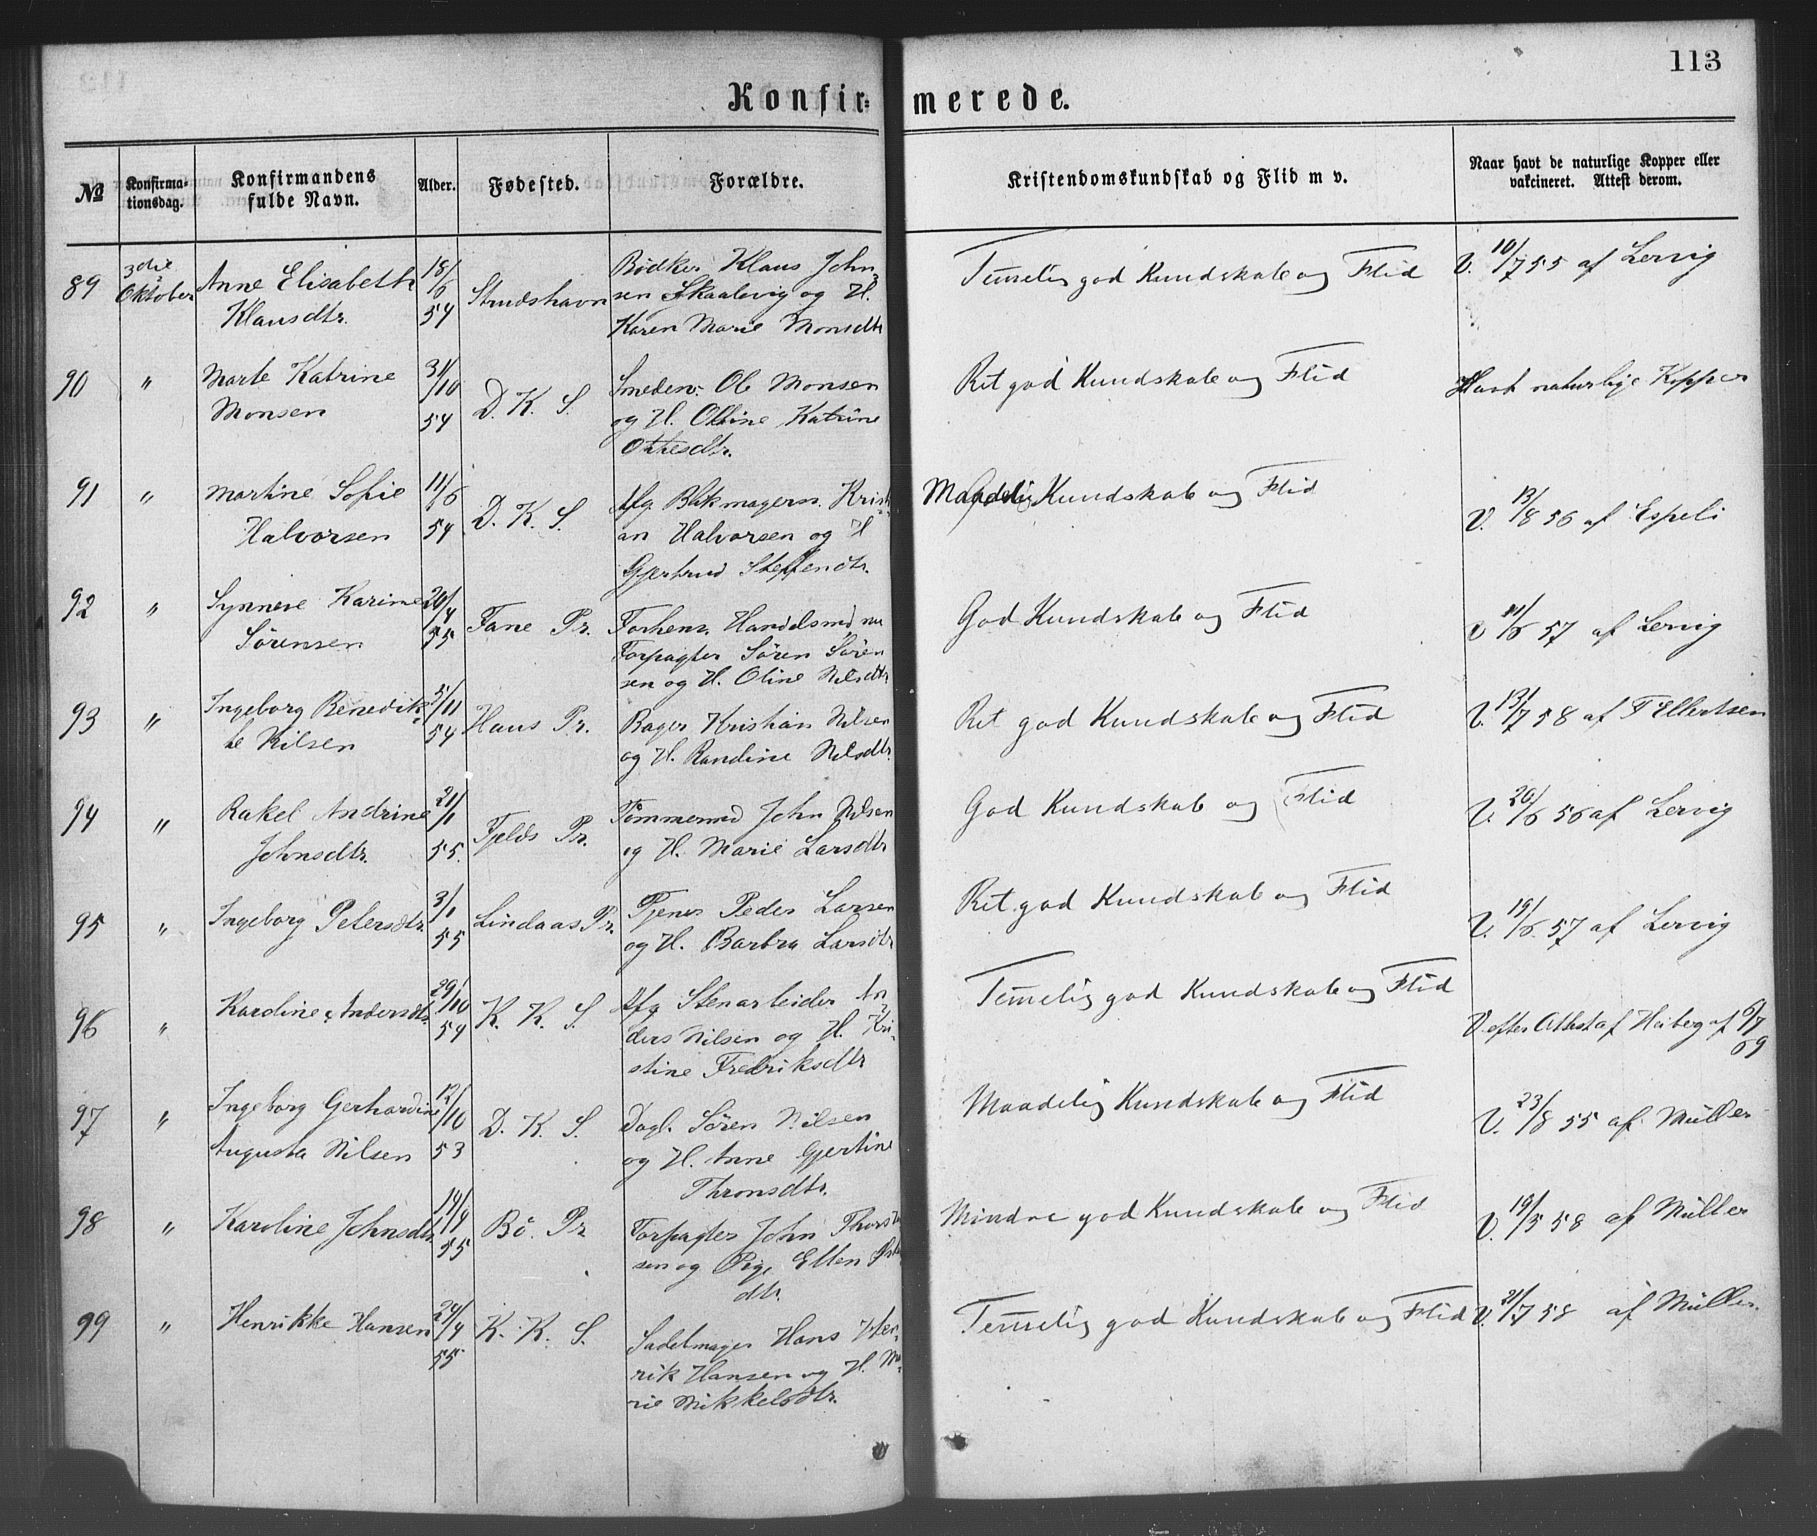 113
Konfir= merede.
No Konfirma-tionsdag. Konfirmandens fulde Navn. Alder. Fødested. Forældre. Kristendomskundskab og Flid m v. Naar havt de naturlige Kopper eller vakcineret. Attest derom.
89 3die Oktober Anne Elisabeth Klausdtr. 18/6 54 Strudshavn Bødker Klaus John=
sen Skaalevig og H.
Karen Marie Monsdtr Temelig god Kundskab og Flid V. 10/7 55 af Lervig
90 " Marte Katrine Monsen 31/10 54 D. K. S. Smedem. Ol Monsen
og H. Oline Katrine
Ottesdtr. Ret god Kundskab og Flid Havt naturlige Kopper
91 " Martine Sofie Halvorsen 11/6 54 D. K. S. Afg. Blokmagersv. Kristi
an Halvorsen og H
Gjertrud Steffendtr. Maadelig Kundskab og Flid V. 13/8 56 af Espeli
92 " Synneve Karine Sørensen 20/4 55 Fane Pr. Forhenv. Handelsmd nu
Forpagter Søren Søren
sen og H. Oline Nilsdtr God Kundskab og Flid V 11/6 57 af Lervig
93 " Ingeborg Benedik=
te Nilsen 5/11 54 Haus Pr. Bager Kristian Nilsen
og H. Randine Nilsdtr. Ret god Kundskab og Flid V. 13/7 58 af F Ellertsen
94 " Rakel Andrine Johnsdtr. 21/1 55. Fjelds Pr. Tømmermd John Nilsen
og H. Marie Larsdtr God Kundskab og Flid V. 20/6 56 af Lervig
95 " Ingeborg Petersdtr. 3/1 55 Lindaas Pr. Tjener Peder Larsen
og H. Barbra Larsdtr Ret god Kundskab og Flid V. 19/6 57 af Lervig
96 " Karoline Andersdtr. 29/10 54 K. K. S. Afg Stenarbeider An
ders Nilsen og H. Kri-
stine Fredriksdtr Temelig god Kundskab og Flid V. efter Attest af Heiberg af 6/7 69
97 " Ingeborg Gerhardine
Augusta Nilsen 12/10 53 D. K. S. Dagl. Søren Nilsen
og H. Anne Gjertine
Thronsdtr. Maadelig Kundskab og Flid V. 23/8 55 af Müller
98 " Karoline Johnsdtr 14/4 55 Bø Pr Forpagter John Thors
sen og Pige Ellen
dtr. Mindre god Kundskab og Flid V. 19/5 58 af Müller
99 " Henrikke Hansen 24/4 55 K. K. S. Sadelmager Hans Hen=
rik Hansen og H. Ma=
rie Mikkelsdtr. Temelig god Kundskab og Flid V. 21/7 58 af Müller.